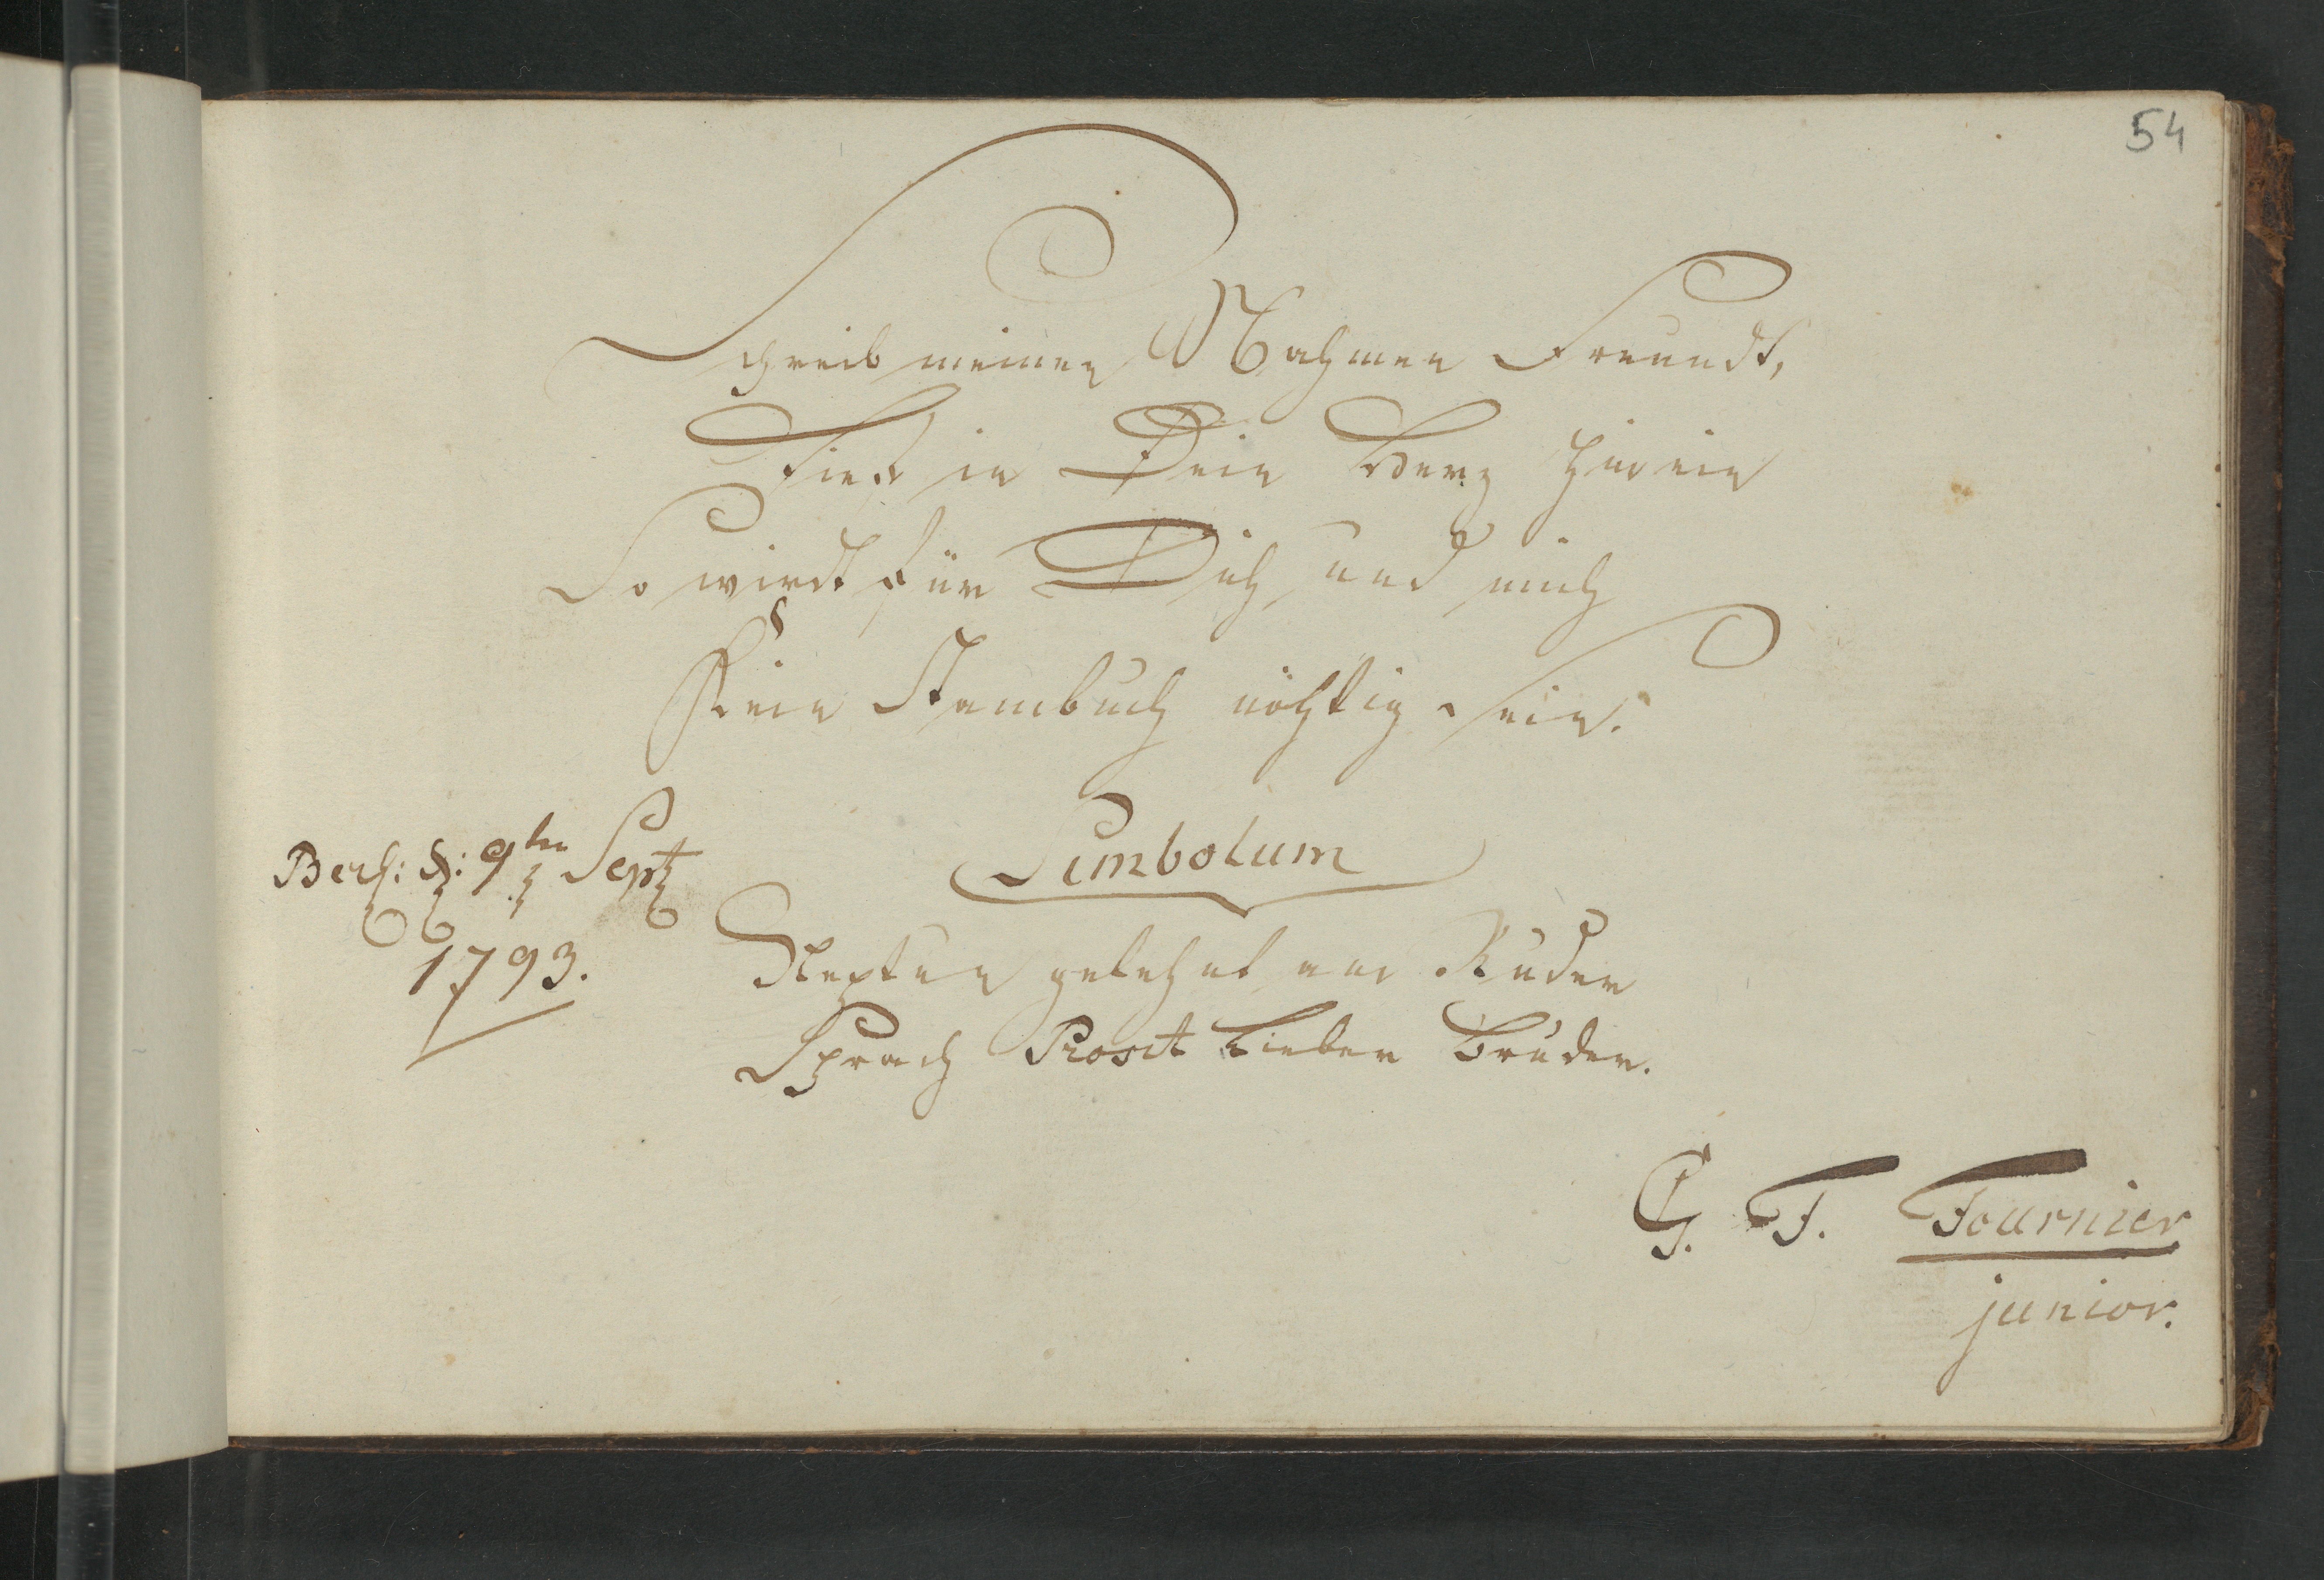 54
Schreib meinen Nahmen Freundt,
Tief in Dein Herz hinein
So wirdt für Dich und mich
Kein Stambuch nöhtig sein.
Simbolum
Berl: d: 9ten Sept
1793.
Neptun gelehnt am Ruder
Sprach Prosit Lieber Bruder.
G. F. Fournier
junior.